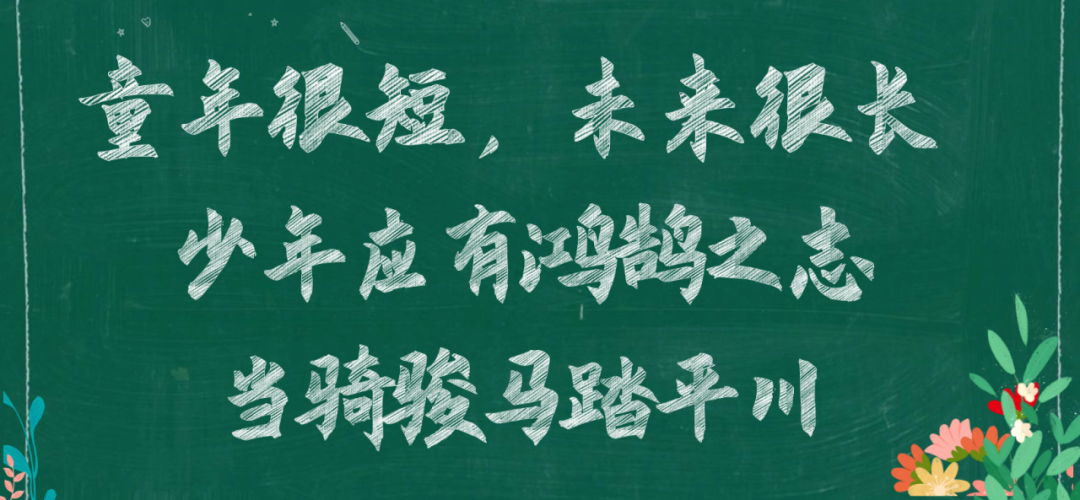 童年很短，未来很长
少年应有鸿鹄之志
当骑骏马踏平川